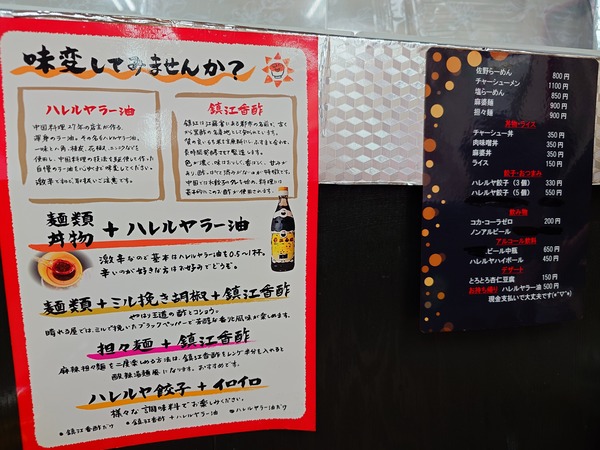 味変してみませんか?
ハレルヤラー油
中国料理27年の店主が作る、
渾身のラー油。その名もハレルヤラー油。
一味と八角、桂皮、花椒、ニンニクなどを
使用し、中国料理の技法を駆使して作った
自慢のラー油を心ゆくまで味変してください。
激辛ですのに取扱いご注意です。
鎮江香酢
鎮江は江蘇省にある町の名前で、古く
から黒酢の名産地として知られています。
色が濃く、味はおっとし、香ばしく、甘みが
麺類
丼物
+ハレルヤラー油
激辛なので基本はハレルヤラー油を0.5〜1杯。
辛いのが好きな方はお好みでどうぞ。
麺類+ミル挽き胡椒+鎮江香酢
やはり王道の酢とコショウ。
晴れる屋では、ミルで挽いたブラックペッパーで芳醇な香沢風味が楽しめます。
担々麺+鎮江香酢
麻辣担々麺を二度楽しめる方法は、鎮江香酢をレンゲ半分を入れると
酸辣湯麺風になります。おすすめです。
ハレルヤ餃子+イロイロ
様々な調味料でお楽しみください。
●鎮江香酢だけ ●鎮江香酢+ハレルヤラー油 ●ハレルヤラー油だけ
佐野らーめん 800円
チャーシューメン 1100円
塩らーめん 850円
麻婆麺 900円
担々麺 900円
丼物・ライス
チャーシュー丼 350円
肉味噌丼 350円
麻婆丼 350円
ライス 150円
餃子・おつまみ
ハレルヤ餃子(3個) 330円
ハレルヤ餃子(5個) 550円
飲み物
コカ・コーラゼロ 200円
ノンアルビール
アルコール飲料
ビール中瓶 650円
ハレルヤハイボール 450円
デザート
とろとろ杏仁豆腐 150円
お持ち帰り ハレルヤラー油 500円
現金支払いで大丈夫です(*˘︶˘*)